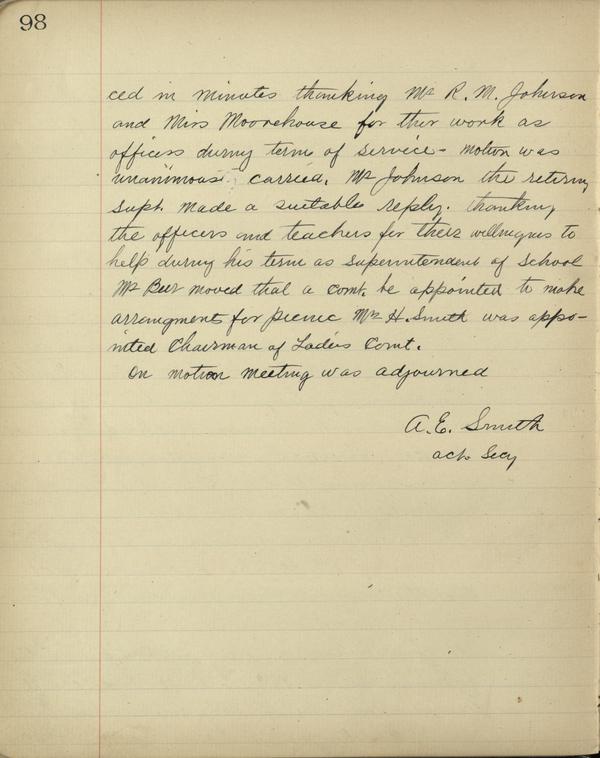 98
ced in minutes thanking Mr R. M. Johnson
and Miss Moorehouse for their work as
officers during term of service - motion was
unanimous carried. Mr Johnson the retiring
Supt. made a suitable reply. thanking
the officers and teachers for their willingnes to
help during his term as Superintendent of School
Mr Beer moved that a comt. be appointed to make
arrangments for picnic Mrs H. Smith was appo-
inted Chairman of Ladies Comt.
On motion meeting was adjourned
A. E. Smith
act. Secy